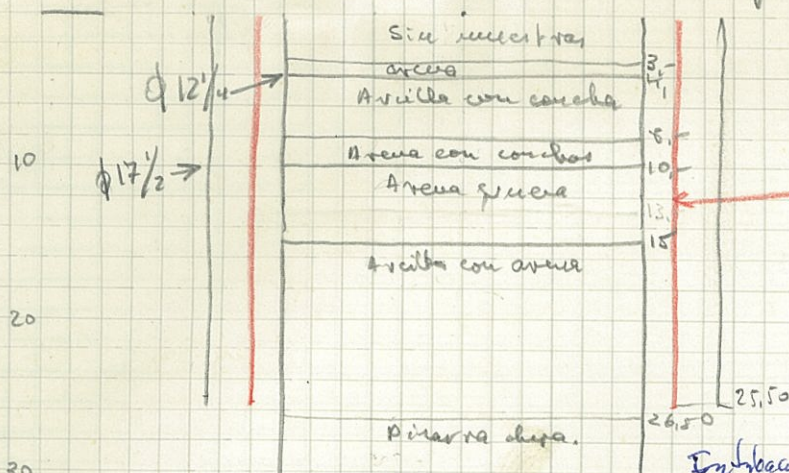 Sin muestras
3,
arena
4,
Φ 12 1/4
Arcilla con concha
8,
10
Arena con conchas
10,
Φ 17 1/2
Arena gruesa
13,
15
Arcilla con arena
20
25,50
26,50
Pizarra dura.
30